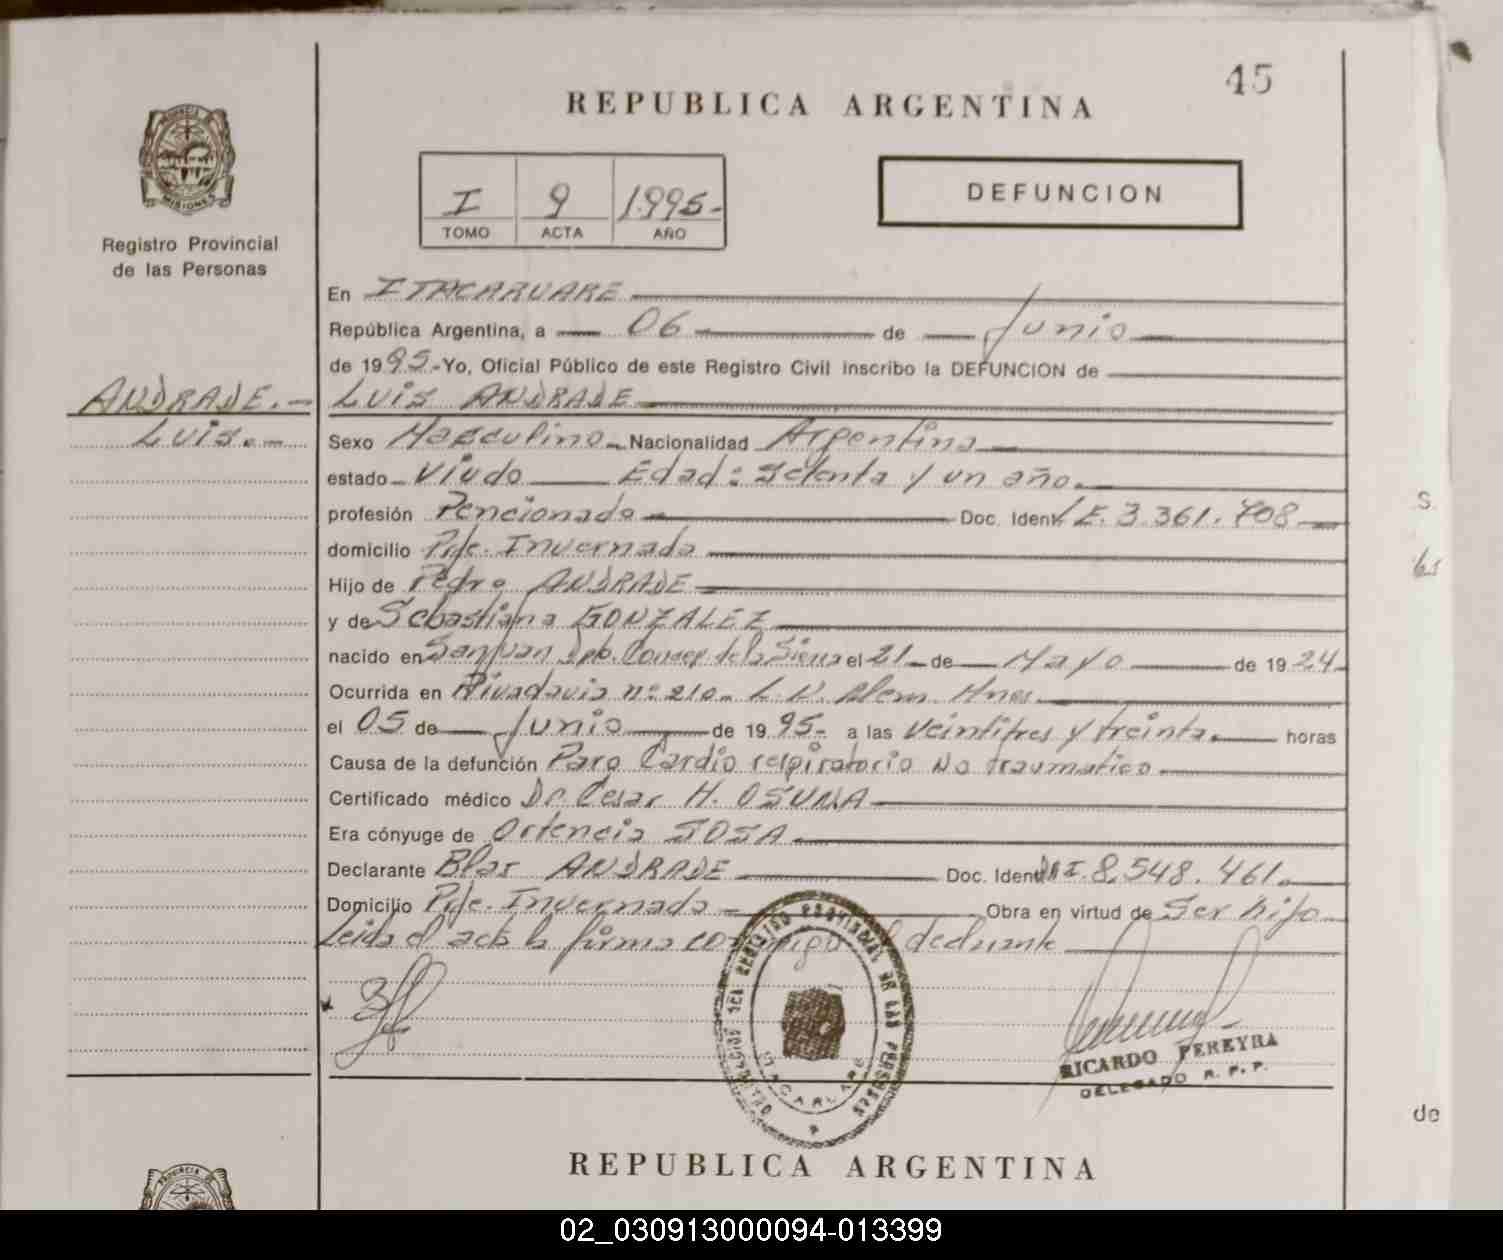 45
REPUBLICA ARGENTINA
I 9 1995.-
TOMO ACTA AÑO
DEFUNCION
PROVINCIA
MISIONES
Registro Provincial
de las Personas
En ITACARUARE
República Argentina, a 06 de Junio
de 1995.- Yo, Oficial Público de este Registro Civil inscribo la DEFUNCION de
ANDRADE.-
LUIS ANDRADE
Luis.-
Sexo Masculino Nacionalidad Argentina
estado Viudo Edad: Setenta y un año.
profesión Pencionado Doc. Ident. L.E. 3.361.708
domicilio Pje. Invernada
Hijo de Pedro ANDRADE
y de Sebastiana GONZALEZ
nacido en San Juan Dpto. Concep. de la Sierra el 21 de Mayo de 1924
Ocurrida en Rivadavia nº 210 - L. N. Alem. Mnes.
el 05 de Junio de 1995.- a las veintitres y treinta horas
Causa de la defunción Paro Cardio respiratorio No traumatico
Certificado médico Dr. Cesar H. OSUNA
Era cónyuge de Ortencia SOSA
Declarante Blas ANDRADE Doc. Ident. DNI. 8.548.461.
Domicilio Pje. Invernada Obra en virtud de Ser hijo
Leida el acta la firma conmigo el declarante
DELEGACION DEL REGISTRO PROVINCIAL DE LAS PERSONAS
ITACARUARE
RICARDO PEREYRA
DELEGADO R. P. P.
S.
de
REPUBLICA ARGENTINA
PROVINCIA
02_030913000094-013399